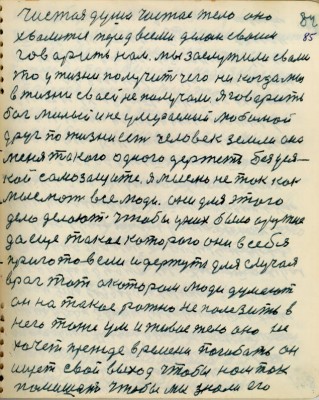 чистая душа чистае тело оно 84
хвалится перед всеми делом своим 85
говорить нам. мы заслужили сваим
это у жизни получит чего ни когда мы
в жизни своей не получали. Я говорить
бог милый и не умираемый любимой
друг по жизни есть человек земли она
меня такого одного держеть без вся-
кой самозащите. я мыслю не так как
мыслют все люди. они для этого
дело делают чтобы у них было оружие
да еще такае которого они в себя
приготовели и держуть для случая
враг тот о котором люди думают
он на такае рожно не полезить в
него тоже ум и живое тело оно не
хочет прежде времени погибать он
ищет свой выход чтобы нам так
помишает чтобы мы знали его